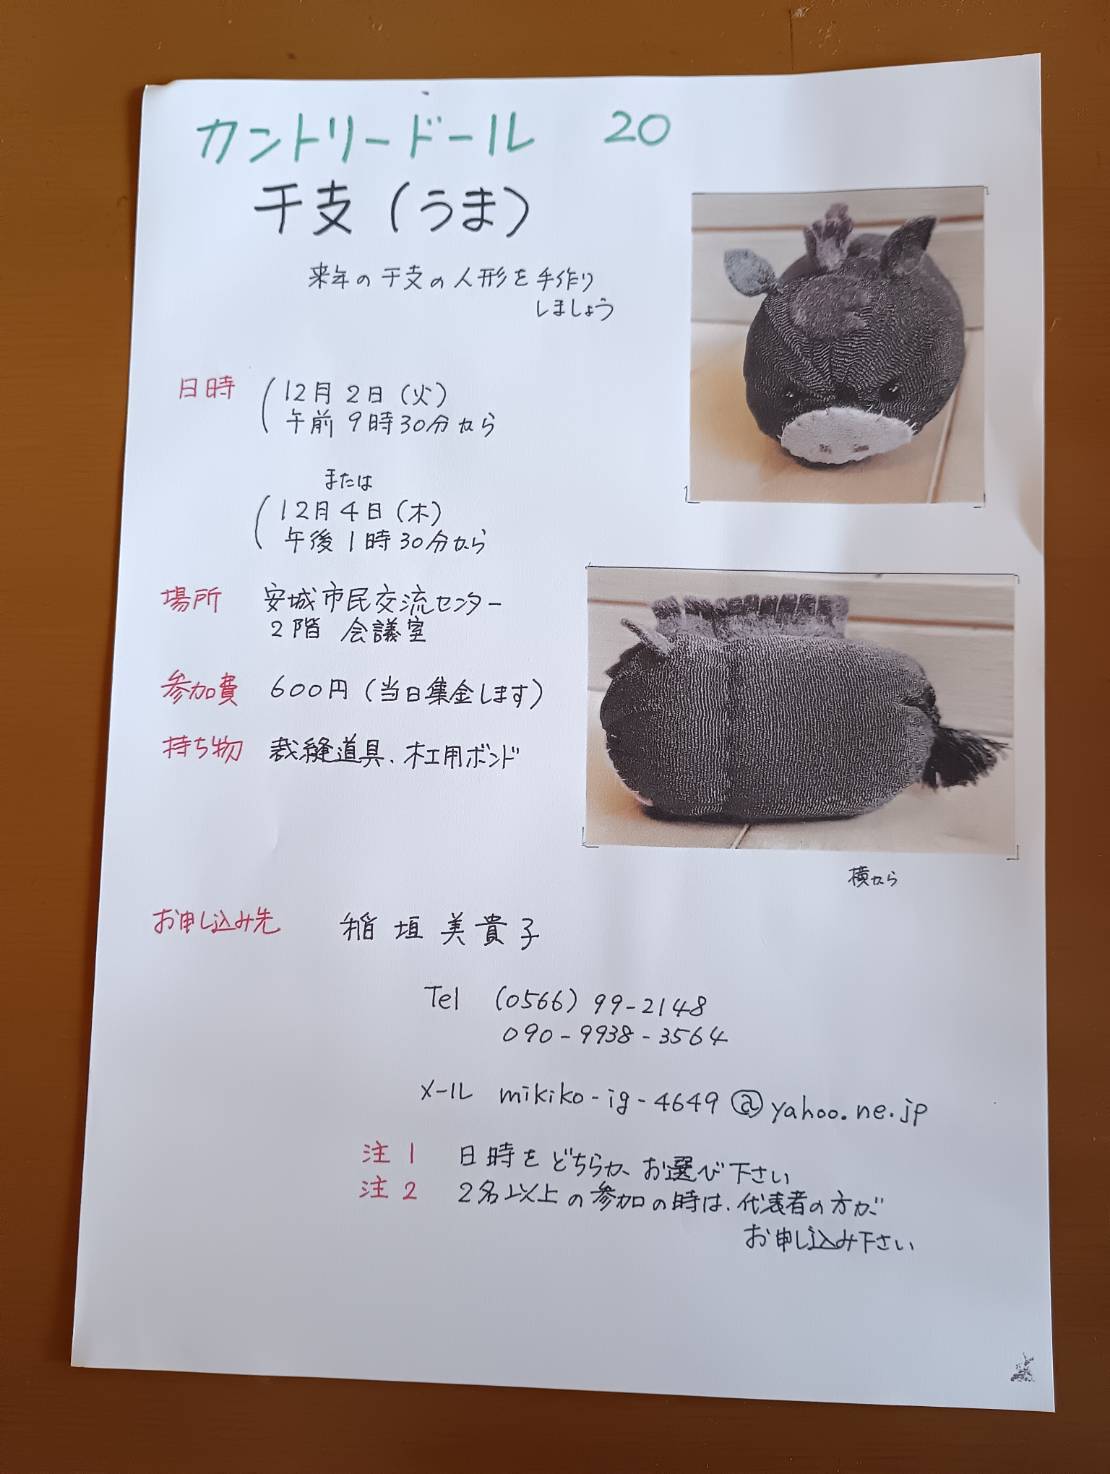 カントリードール 20
干支(うま)
来年の干支の人形を手作り
しましょう
日時 12月2日(火)
午前9時30分から
または
12月4日(木)
午後1時30分から
場所 安城市民交流センター
2階 会議室
参加費 600円(当日集金します)
持ち物 裁縫道具、木工用ボンド
横から
お申し込み先 稲垣美貴子
Tel (0566)99-2148
090-9938-3564
メール mikiko-ig-4649@yahoo.ne.jp
注1 日時をどちらか、お選び下さい
注2 2名以上の参加の時は、代表者の方が
お申し込み下さい